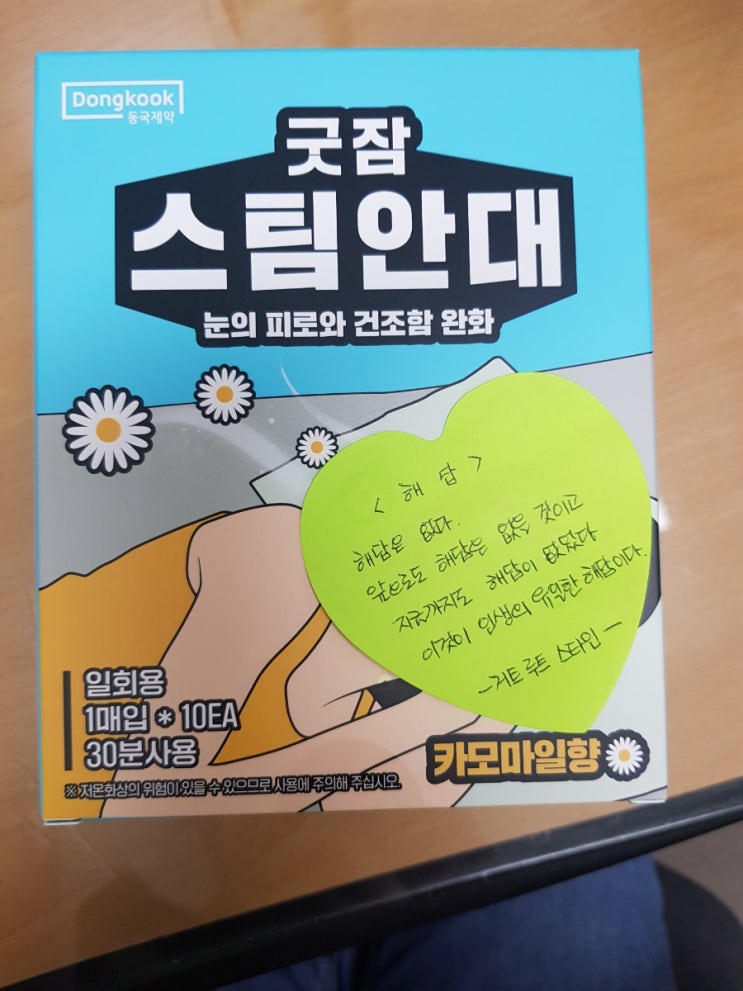 Dongkook
동국제약
굿잠
스팀안대
눈의 피로와 건조함 완화
< 해 답 >
해답은 없다.
앞으로도 해답은 없을 것이고
지금까지도 해답이 없었다
이것이 인생의 유일한 해답이다.
-거트루트 스타인-
일회용
1매입 * 10EA
30분사용
카모마일향
※ 저온화상의 위험이 있을 수 있으므로 사용에 주의해 주십시오.